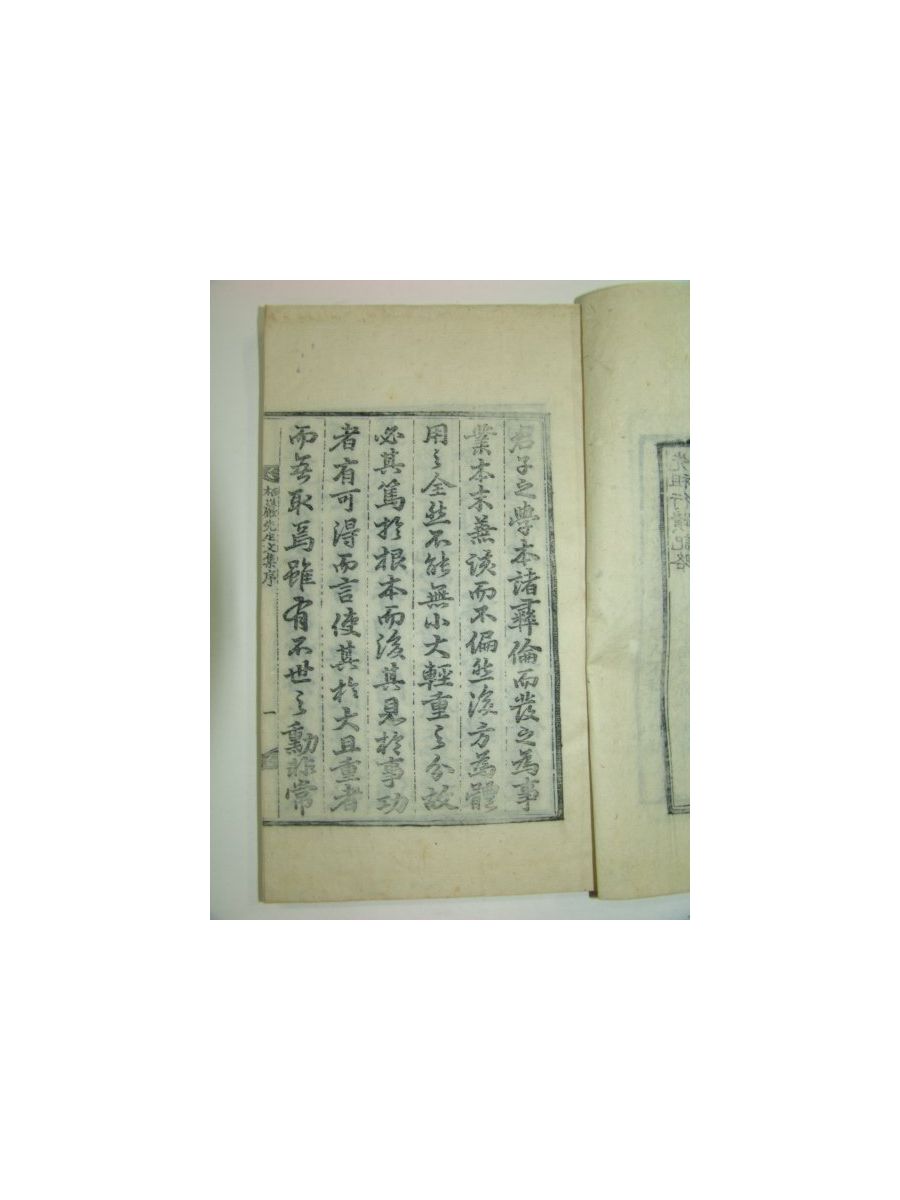 君子之學本諸彛倫而發之為事
業本末兼談而不偏然後方為體
用之全然不能無小大輕重之分故
必其篤於根本而後其見於事功
者有可得而言使其於大且重者
而無取焉雖有不世之勳非常
巖先生文集序
一
先祖行蹟記略